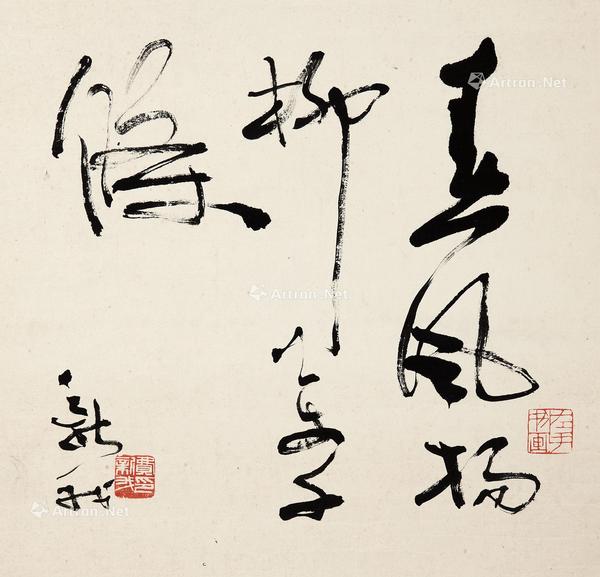 春風楊
柳萬千
條
新我
左手書畫
Artron.Net
Artron.Net
Artron.Net